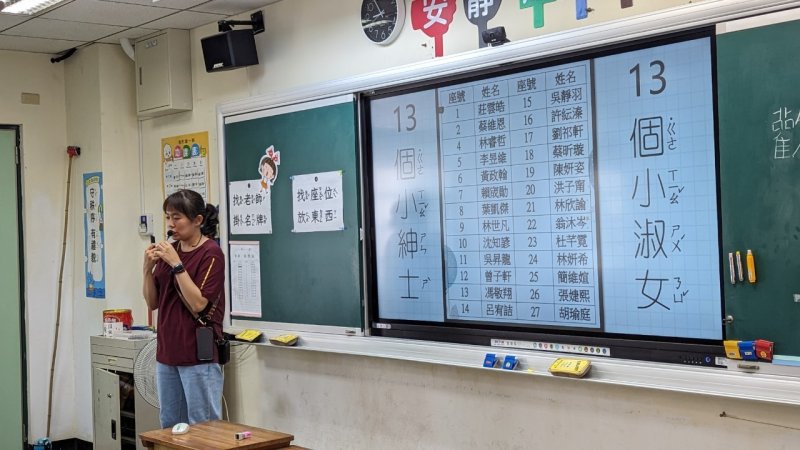 安靜
找老師
掛名牌
找座位
放東西
守秩序 有禮貌
13個小紳士
座號 姓名 座號 姓名
1 莊雲皓 15 吳靜羽
2 蔡維恩 16 許紜溱
4 林睿哲 17 劉祁軒
5 李昇維 18 蔡昕璇
6 黃政翰 19 陳妍姿
7 賴宬勛 20 洪子甯
8 葉凱傑 21 林欣諭
9 林世凡 22 翁沐岑
10 沈知諺 23 杜芊霓
11 吳昇龍 24 林妍希
12 曾子軒 25 簡維媗
13 馮敬翔 26 張婕熙
14 呂宥喆 27 胡瑜庭
13個小淑女
ㄍㄜˋ ㄒㄧㄠˇ ㄕㄣ ㄕˋ
ㄍㄜˋ ㄒㄧㄠˇ ㄕㄨˊ ㄋㄩˇ